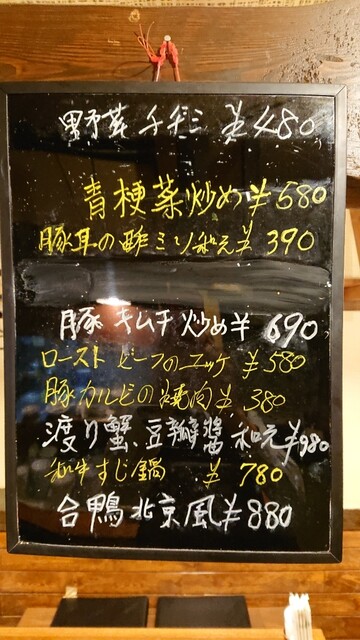 野菜チヂミ ¥480
青梗菜炒め ¥580
豚耳の酢ミソ和え ¥390
豚キムチ炒め ¥690
ローストビーフのユッケ ¥580
豚カルビの焼肉 ¥380
渡り蟹豆瓣醤和え ¥980
和牛すじ鍋 ¥780
合鴨北京風 ¥880